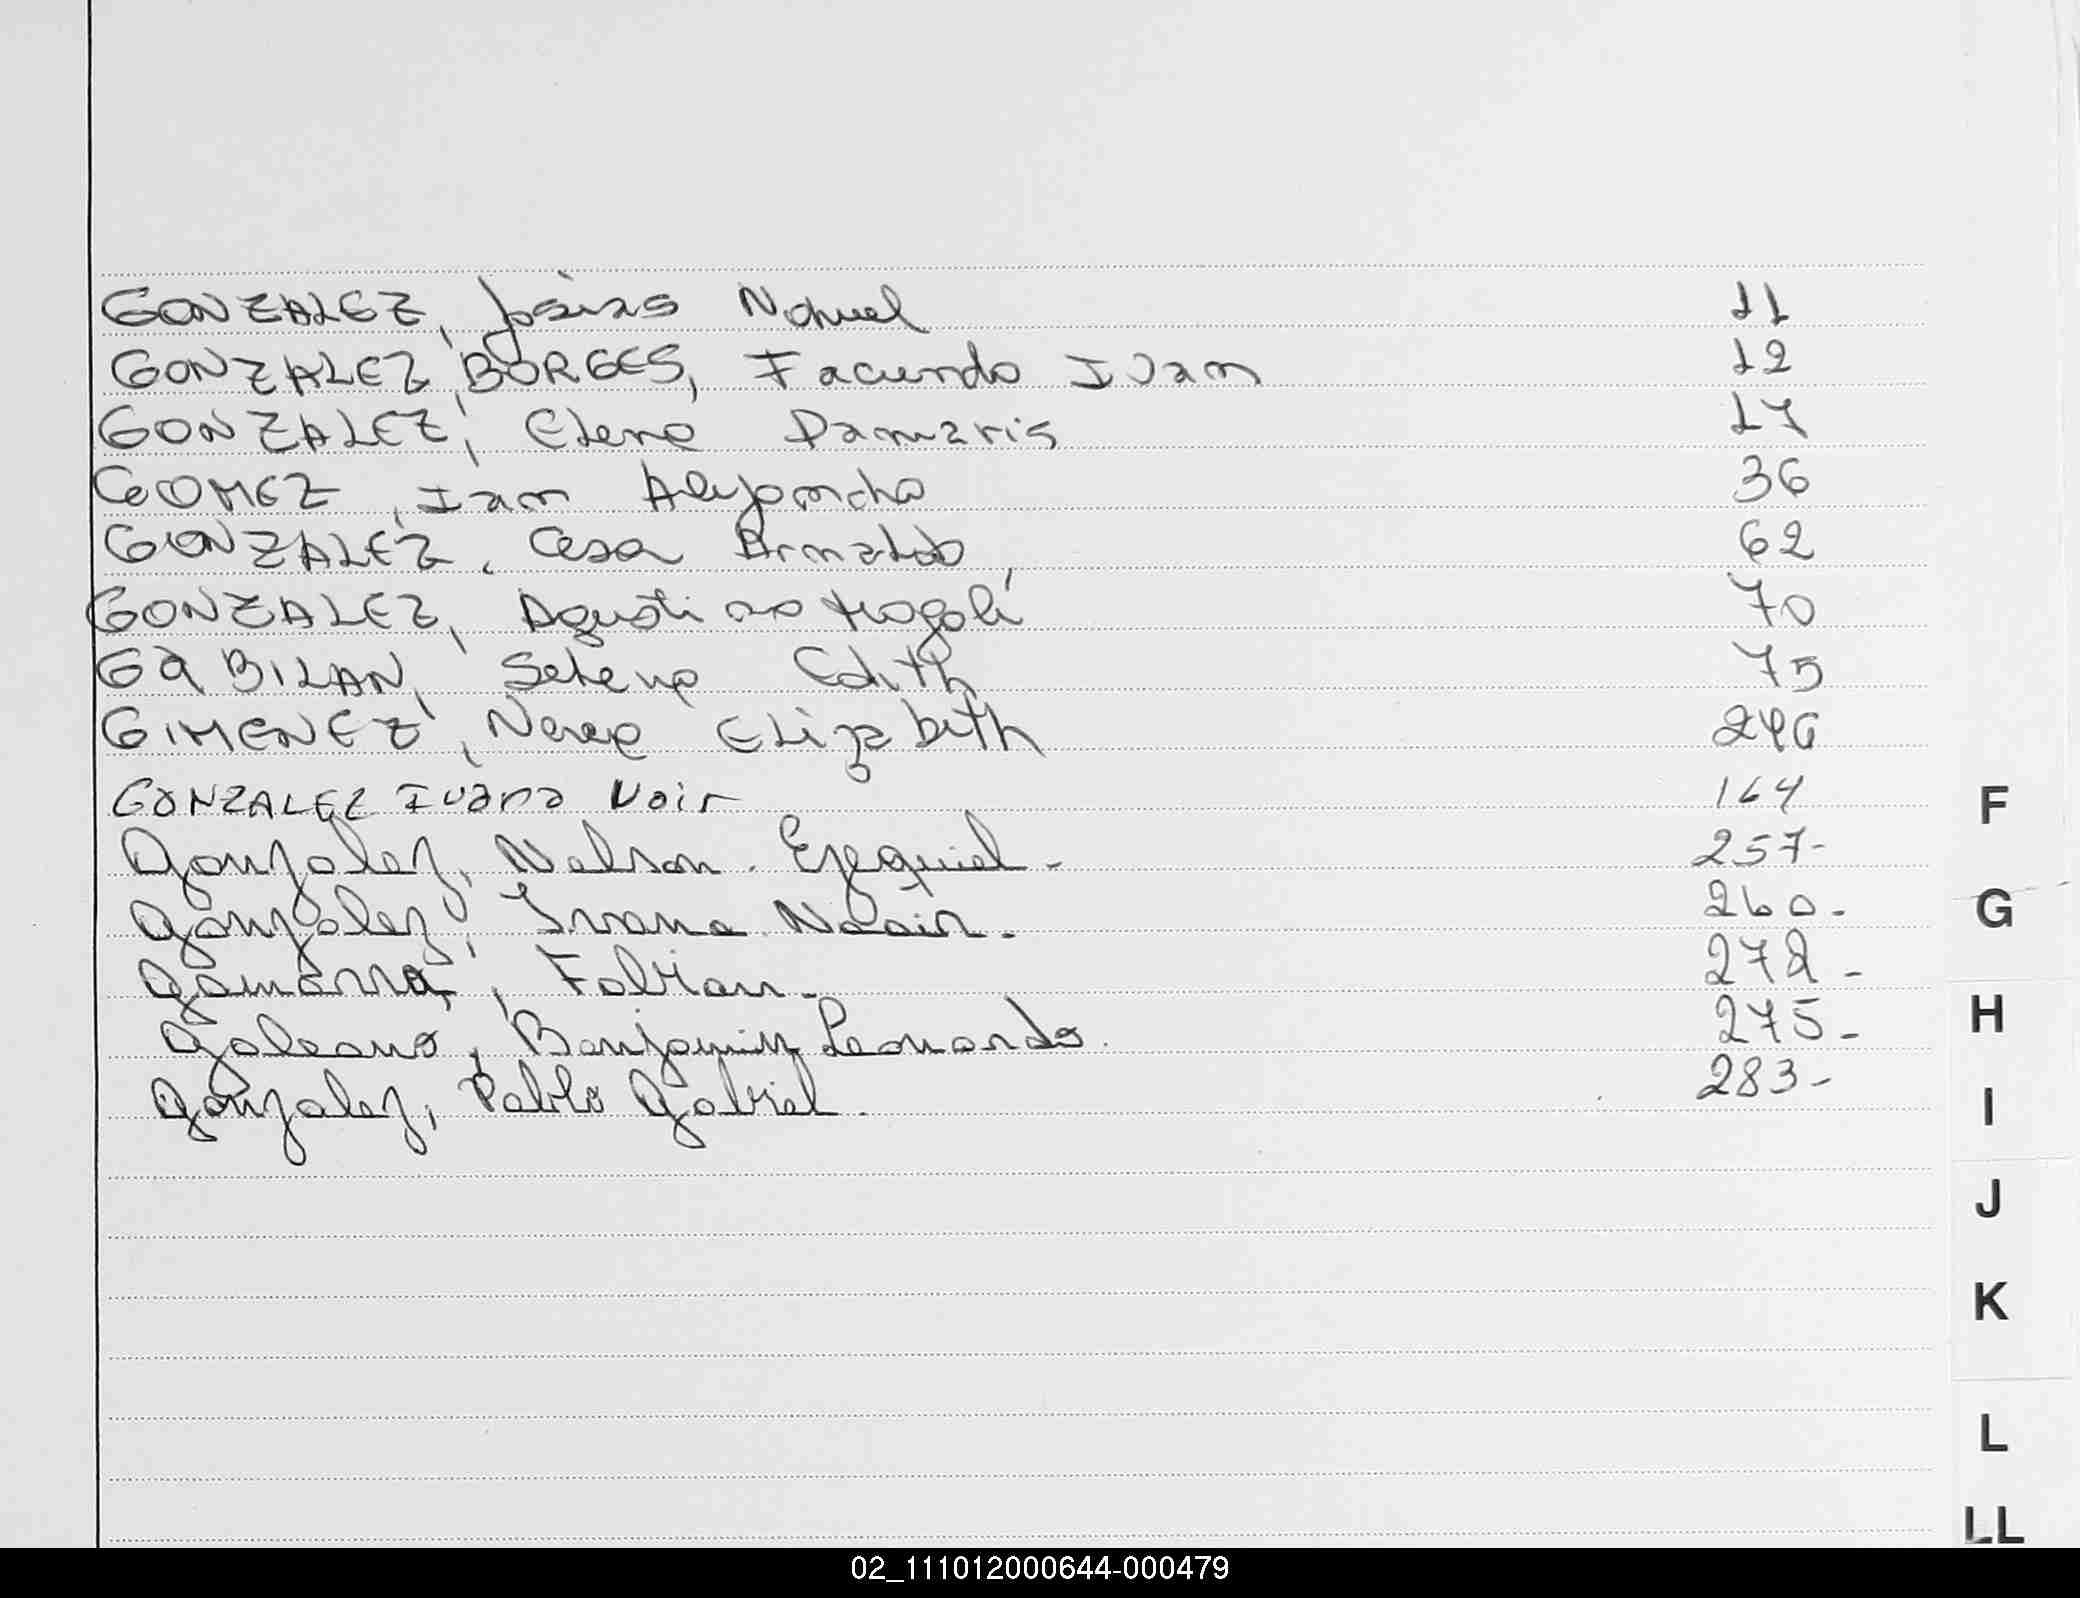 GONZALEZ, Josias Nahuel 11
GONZALEZ BORGES, Facundo Ivan 12
GONZALEZ, Elena Damaris 17
GOMEZ, Ian Alejandro 36
GONZALEZ, Cesar Arnaldo, 62
GONZALEZ, Agustina 70
GABILAN, Selena Edith 75
GIMENEZ, Nerea Elizabeth 246
GONZALEZ Ivana Noir 164
F
Gonzalez, Nelson. Ezequiel- 257-
Gonzalez, Ivana Nooir. 260-
G
Gamarra, Fabian- 272-
Galeano, Benjamin Leonardo. 275-
H
Gonzalez, Pablo Gabriel. 283-
I
J
K
L
LL
02_111012000644-000479